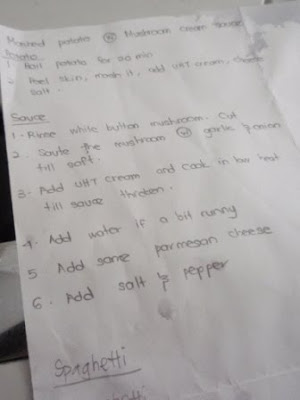 Mashed potato w Mushroom cream sauce
Potato
1. Boil potato for 20 min
2. Peel skin, mash it, add UHT cream, cheese
salt.
Sauce
1. Rinse white button mushroom. Cut
2. Saute the mushroom w garlic & onion
till soft.
3. Add UHT cream and cook in low heat
till sauce thicken.
4. Add water if a bit runny
5 Add some parmesan cheese
6. Add salt & pepper
Spaghetti